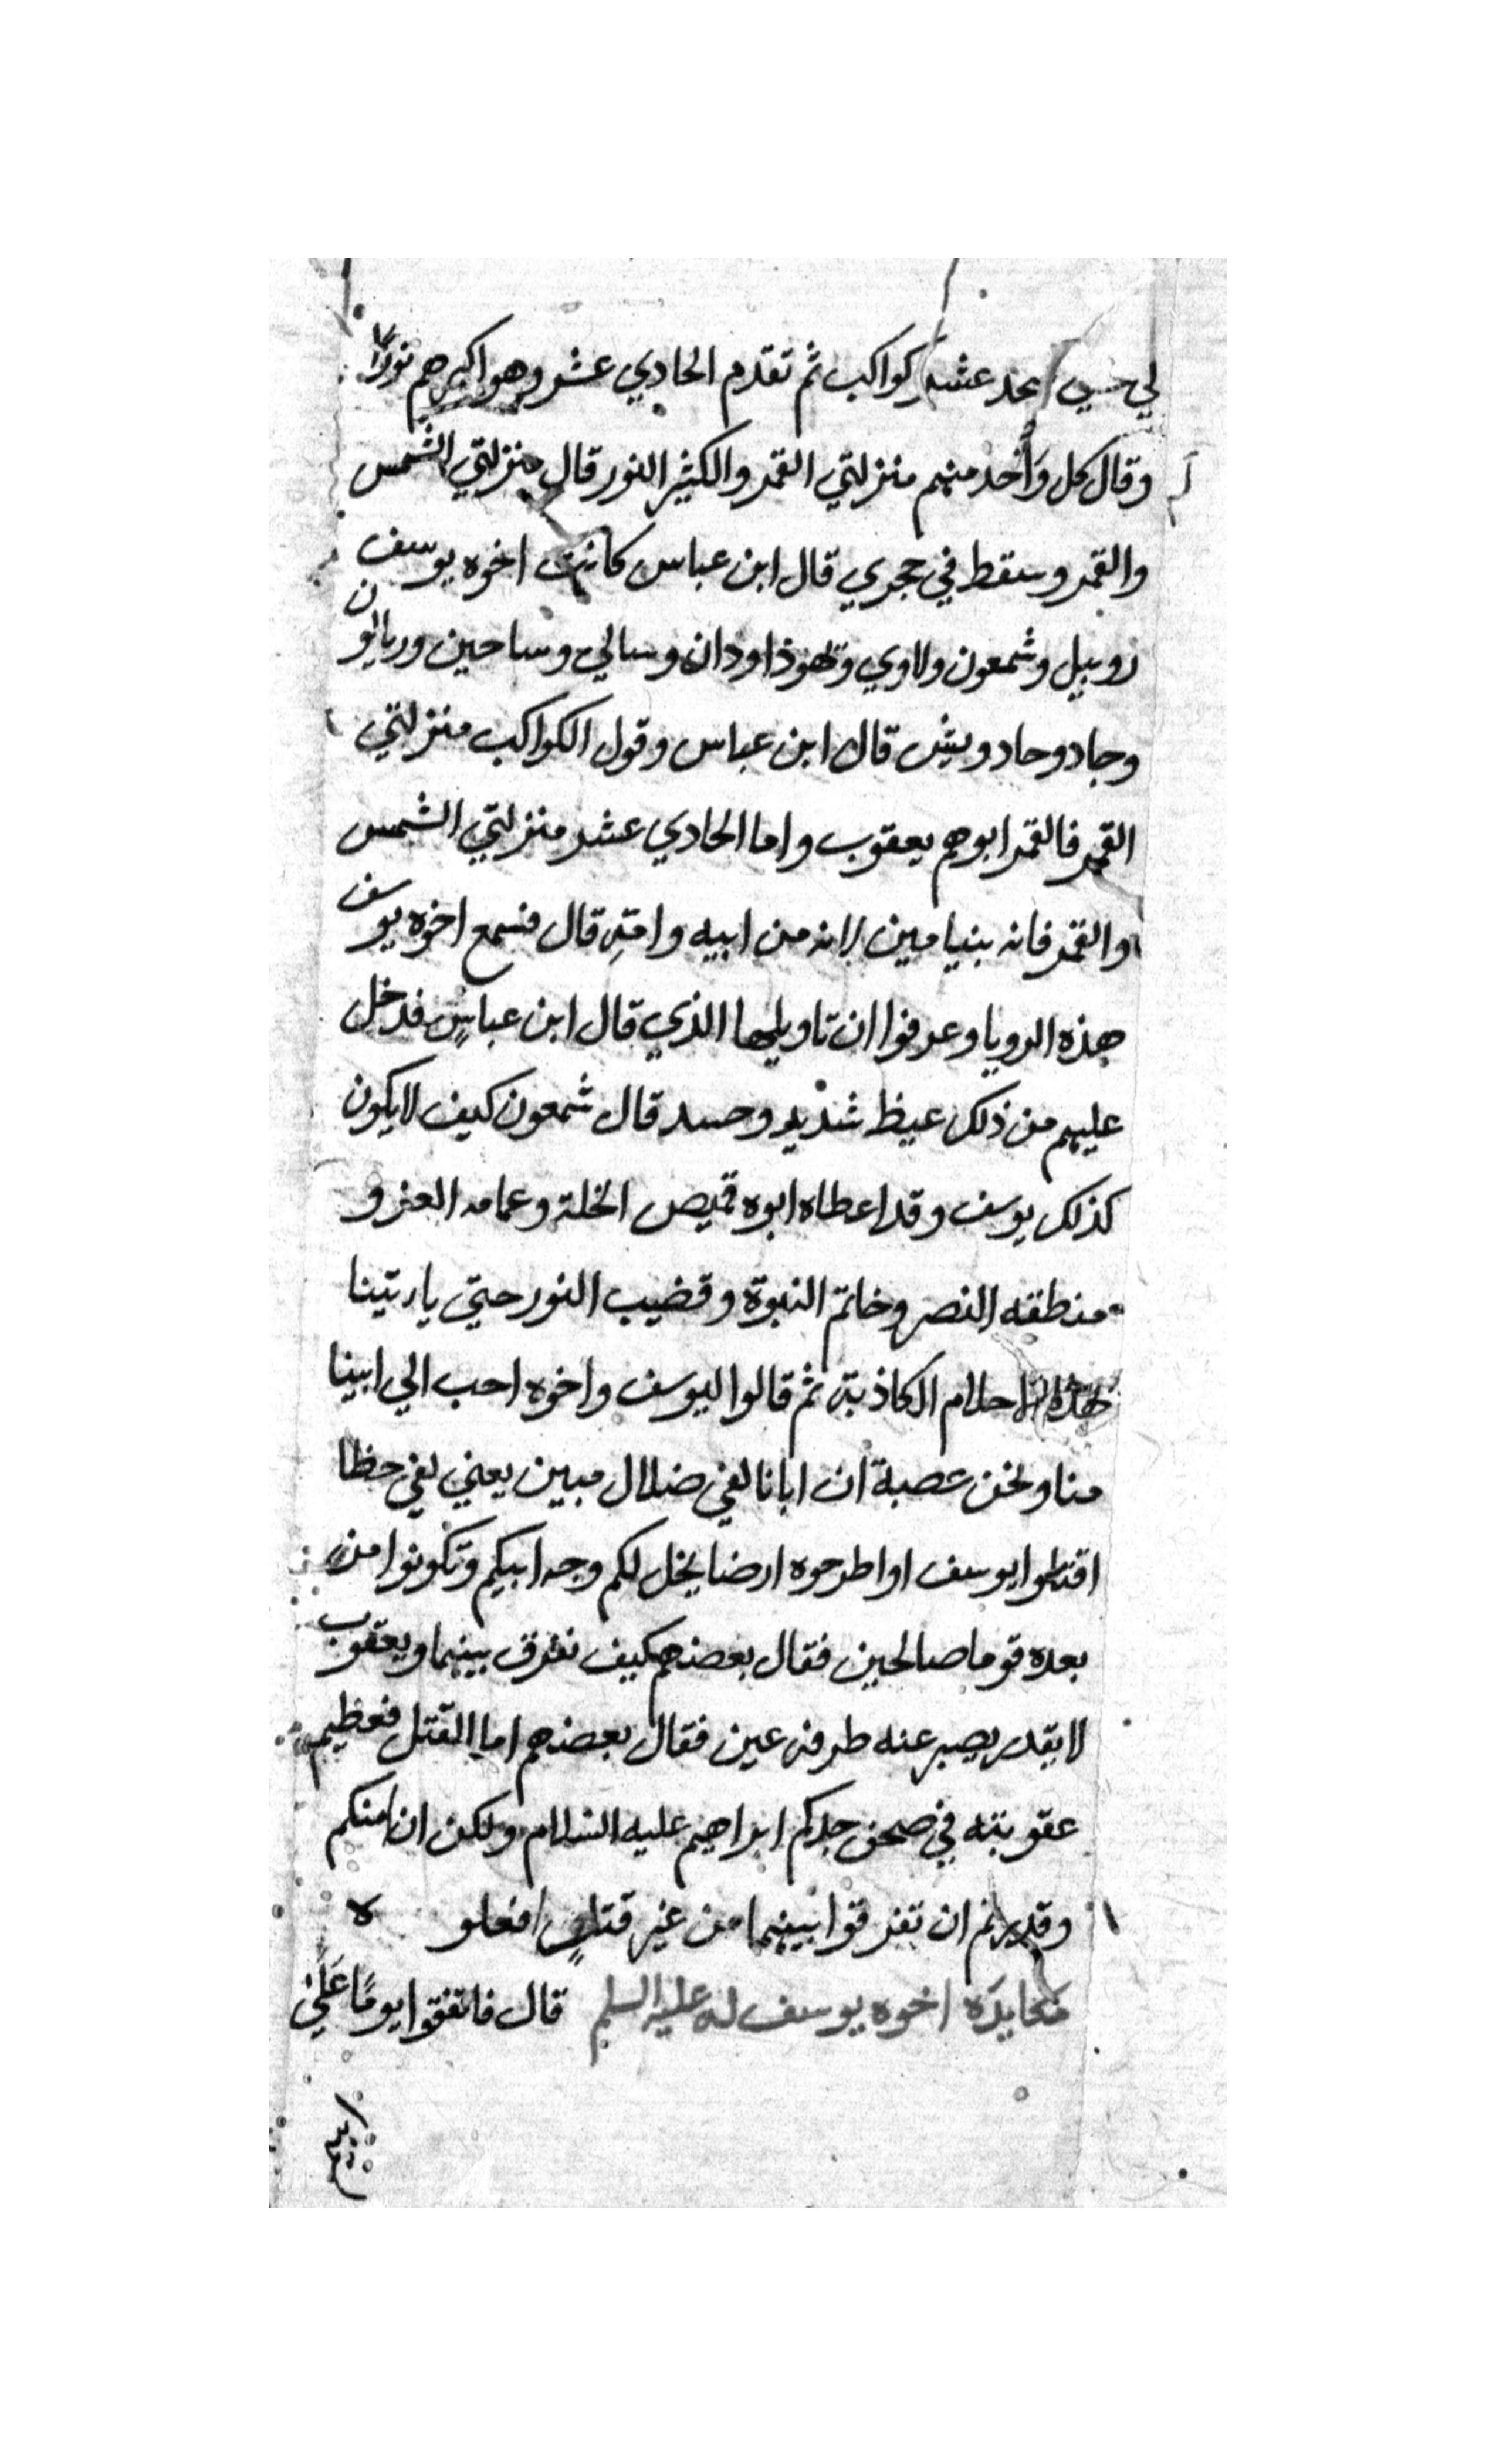 لي حسي احد عشر كواكب ثم تقدم الحادي عشر وهو اكبرهم نورًا
وقال كل واحد منهم منزلتي القمر والكثير النور قال منزلتي الشمس
والقمر وسقط في حجري قال ابن عباس كانت اخوه يوسف
روبيل وشمعون ولاوي ويهوذا ودان وسالي وساحين وريالون
وجاد وحاد ويش قال ابن عباس وقول الكواكب منزلتي
القمر فالقمر ابوهم يعقوب واما الحادي عشر منزلتي الشمس
والقمر فانه بنيامين لانه من ابيه وامّهِ قال فسمع اخوه يوسف
هذه الرويا وعرفوا ان تاويلها الذي قال ابن عباسٍ فدخل
عليهم من ذلك غيظ شديد وحسد قال شمعون كيف لا يكون
كذلك يوسف وقد اعطاه ابوه قميص الخلة وعمامه العز و
منطقه النصر وخاتم النبوة وقضيب النور حتي ياتينا
بهذه الاحلام الكاذبة ثم قالوا ليوسف واخوه احب الي ابينا
منا ونحن عصبة ان ابانا لفي ضلال مبين يعني لفي خطا
اقتلوا يوسف او اطرحوه ارضا يخل لكم وجه ابيكم وتكونوا من
بعده قوما صالحين فقال بعضهم كيف نفرق بينهما ويعقوب
لا يقدر يصبر عنه طرفه عين فقال بعضهم اما القتل فعظيم
عقوبته في صحف جدكم ابراهيم عليه السلام ولكن ان امنكم
وقدرتم ان تفرقوا بينهما من غير قتلٍ افعلو ه
مكايدَه اخوه يوسف له عليه السلم قال فاتفقوا يومًا عَلَي